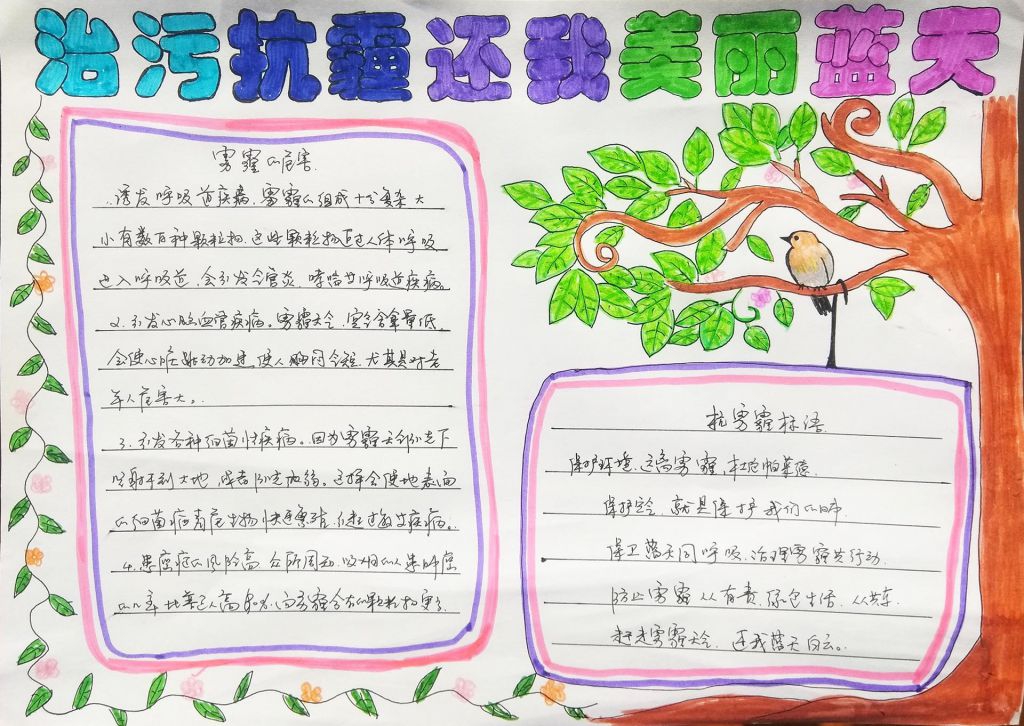 治污抗霾还我美丽蓝天
雾霾的危害
1.诱发呼吸道疾病.雾霾的组成十分复杂大
小有数百种颗粒物.这些颗粒物通过人体呼吸
进入呼吸道,会引发气管炎,哮喘等呼吸道疾病。
2.引发心脑血管疾病。雾霾天气,空气含氧量低,
会使心脏跳动加速,使人胸闷气短.尤其是对老
年人危害大。
3.引发各种细菌性疾病。因为雾霾天气阳光下
照射不到大地,或者阳光减弱。这样会使地表面
的细菌病毒微生物快速繁殖,引起过敏等疾病。
4.患癌症的风险高.众所周知,吸烟的人患肺癌
的几率比普通人高
抗雾霾标语
保护环境.远离雾霾,
保护空气,就是保护我们的肺.
保卫蓝天同呼吸,治理雾霾共行动.
防止雾霾人人有责.绿色生活,人人共享.
赶走雾霾天气,还我蓝天白云。